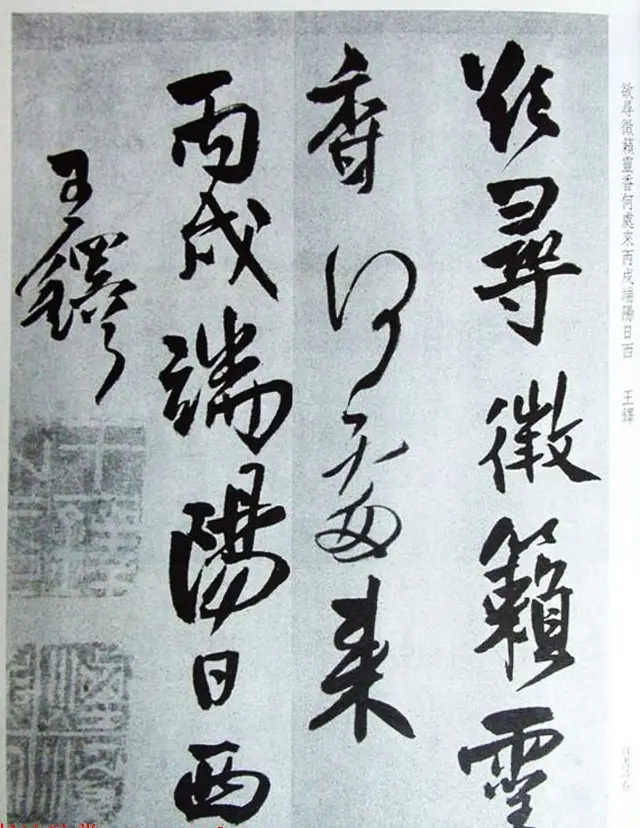 欲尋徵籟靈
香何處來
丙戌端陽日西
王鐸
欲尋徵籟靈香何處來丙戌端陽日西 王鐸